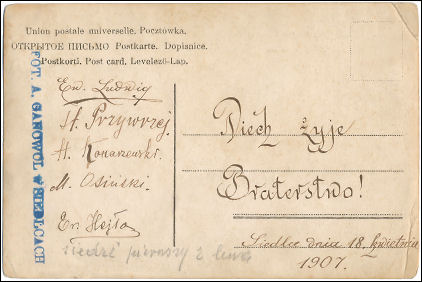 Union postale universelle. Pocztówka.
ОТКРЫТОЕ ПИСЬМО Postkarte. Dopisnice.
Postkorti. Post card, Levelező-Lap.
FOT. A. GANCWOL W SIEDLCACH
En. Ludwig
St. Przywrzej
St. Konarzewski.
M. Osiński.
En. Hejło
siedzi pierwszy z lewej
Niech żyje
Braterstwo!
Siedlce dnia 18, kwietnia
1907.